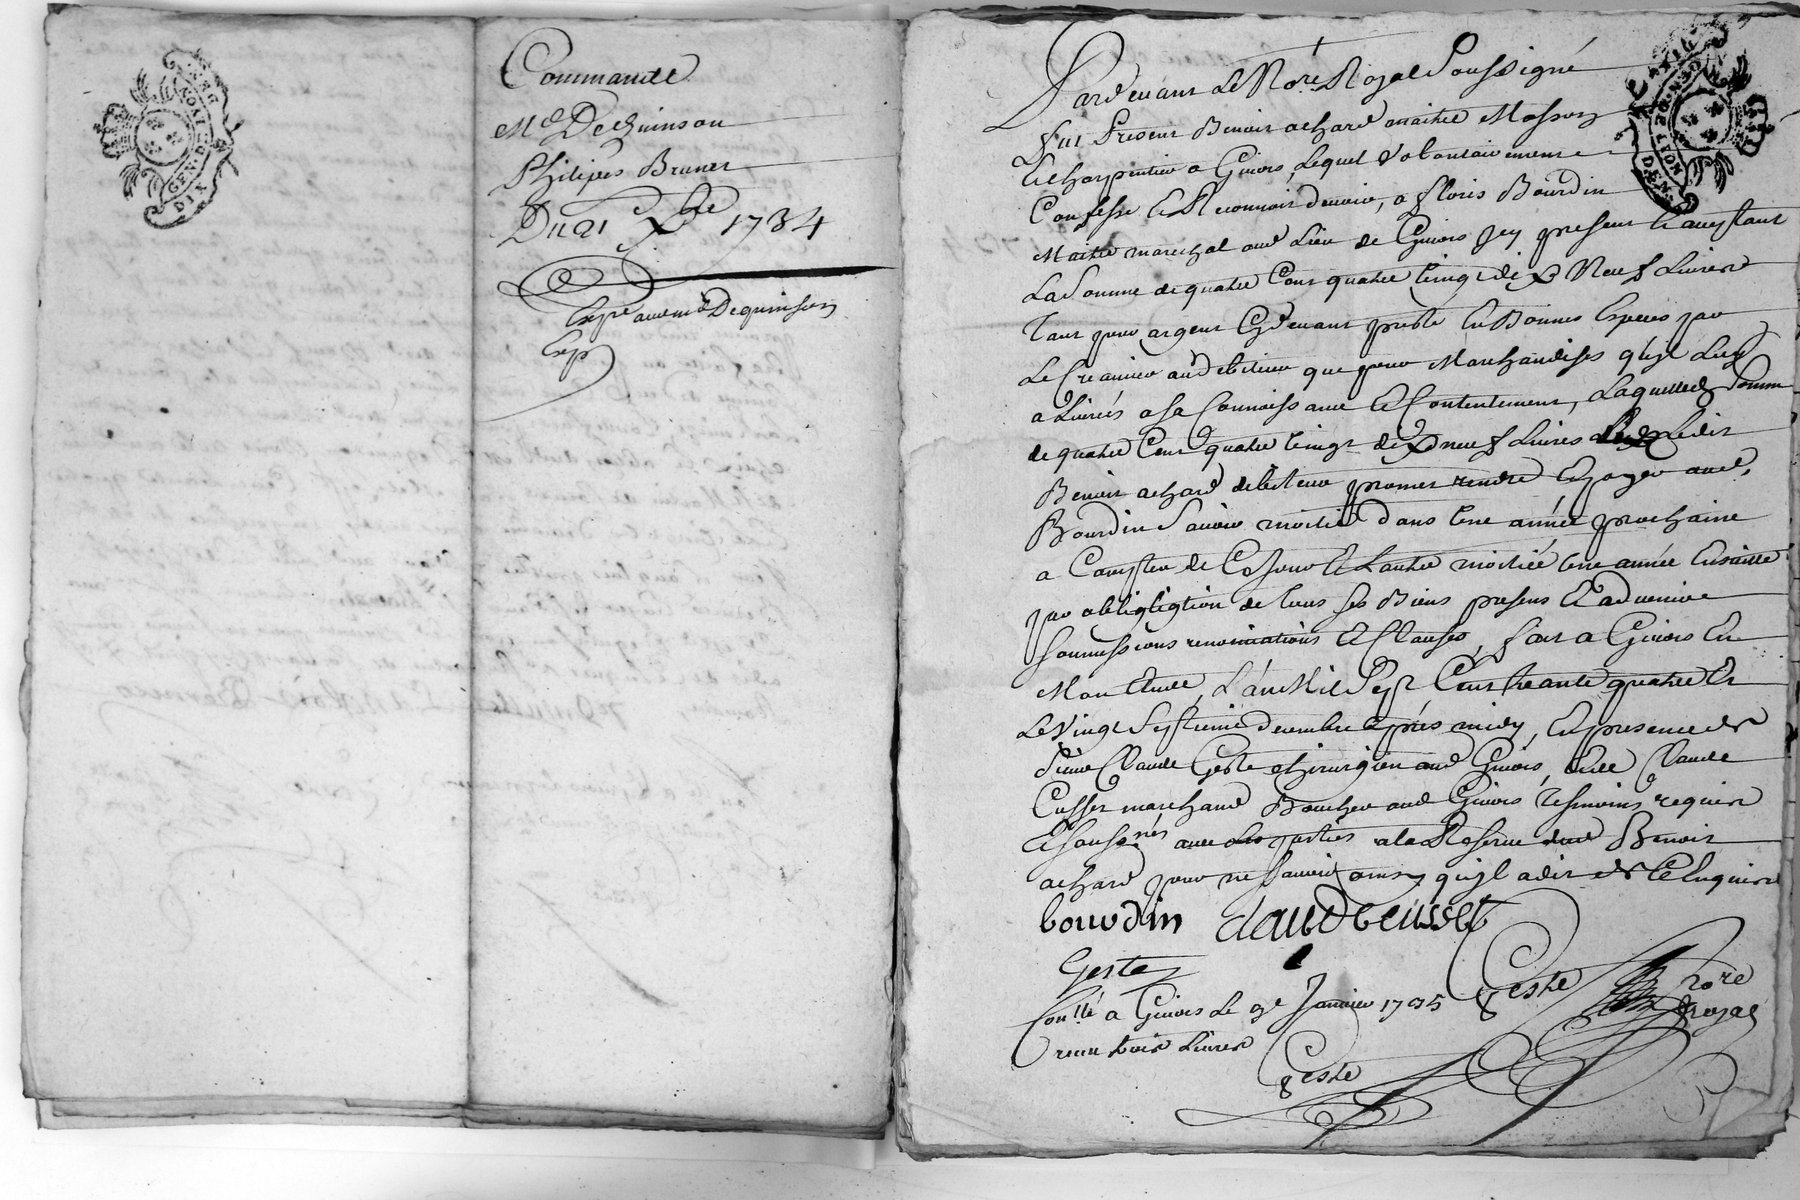 GEN. DE
DIX
Commande
Md Dequinson
Philipes Brunet
Du 21 Xbre 1734
Expe aud md Dequinson
Exp
Pardevant Le Nore. Royal Soussigné
fut Present Benoit achard maitre Masson
Et charpentier a Givors, Lequel Volontairement
Confesse Et Reconnoit devoir, a floris Bourdin
Maitre marechal aud Lieu de Givors Jcy present Et aceptant
La Somme de quatre Cent quatre Vingt dix Neuf Livres
Tant pour argent Cydevant presté En Bonnes Especes par
Le Creancier au debiteur que pour Marchandises quyl Luy
a Livrés a sa Connoissance Et Contentement, Laquelle Somme
de quatre Cent quatre Vingt dix neuf Livres Ledit
Benoit achard debiteur promet rendre Et payer aud.
Bourdin Savoir moitié dans Une année prochaine
a Compter de Ce Jour Et Lautre moitiée Une année Ensuitte
par obligligtion de tous ses Biens presens Et advenir
Soumissions renonciations Et Clauses, fait a Givors En
Mon Etude, L'an Mil Sept Cent trante quatre Et
Le Vingt Septieme decembre Apres midy, En presence de
Sieur Claude Geste chirurgien aud Givors, Et de Claude
Cusset marchand Boucher aud Givors Tesmoins requis
Et soussnés avec les parties a la Reserve dud Benoit
achard pour ne Savoir ainsy quyl a dit de Ce Enquis
bourdin claude cusset
Geste
Geste Nore Royal
Contllé a Givors Le 9e Janvier 1735
receu trois Livres
Geste